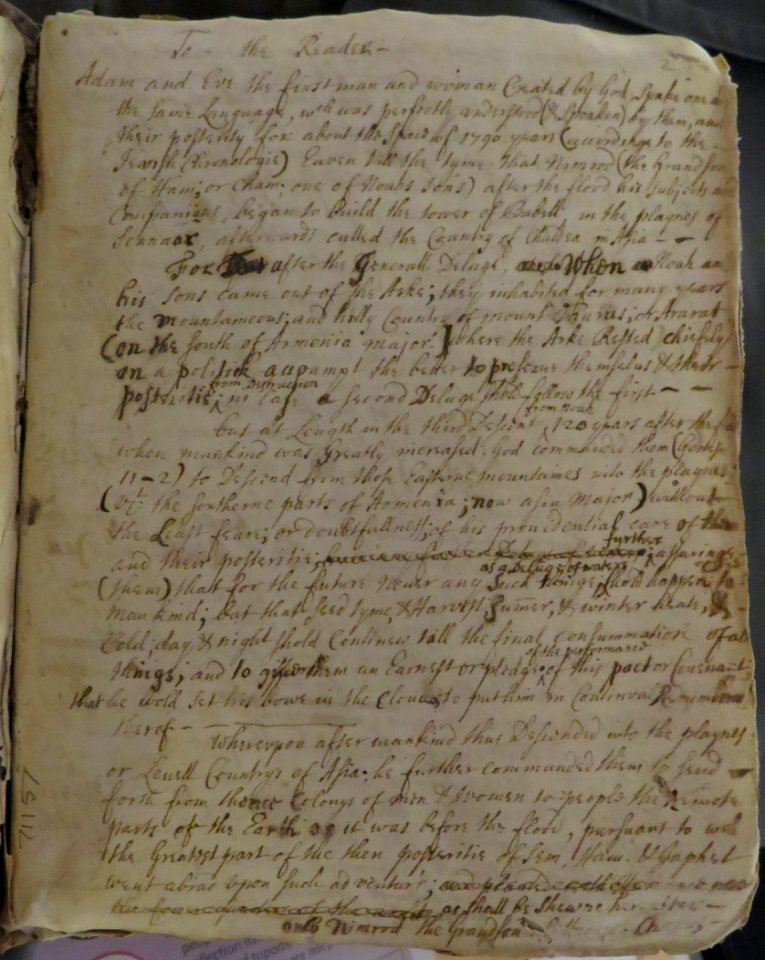 To the Reader –
Adam and Eve the first man and woman Created by God, spake one
the same Language, wch was perfectly understood (& spoaken) by them, and
their posterity for about the space of 1790 years (according to the
Jewish Chronologie) Eaven till the tyme that Nimrod (the Grandson
of Ham, or Cham, one of Noahs sons) after the flood his subjects and
Companions, began to build the tower of Babell in the playnes of
Sennaar, afterwards called the Country of Chaldea in Asia – –
For after the Generall Deluge, When Noah an
his sons came out of the Arke; they inhabited for many years
the mountaineous; and hilly Country of mount Taurus; or Ararat
(on the south of Armenia major) where the Arke Rested chiefly
on a politick accoumpt the better to preserve themselves & their
posteritie from Destruction in case a second Deluge shold follow the first – –
but at Length in the third Descent from Noah 120 years after the
when mankind was Greatly increased God commanded them (Genes:
11–2) to Descend from those Easterne mountaines into the playnes
(vizt the southerne parts of Armenia; now asia Major) without
the Least feare; or doubtfullness; of his providential care of them
and their posteritie; further assuring
(them) that for the future never any such thinge as a Deluge of waters shold happen to
mankind; but that seed tyme, & Harvest, Summer, & winter heate, &
Cold; day & night shold Continew till the final consummation of all
things; and to give them an Earnest or pledge of the performance of this pact or Covenant
that he wold set his bowe in the Clouds to put him in Continual Rememberance
therof –
Wherevpon after mankind thus Descended into the playnes
or Levell Countrys of Asia: he further commanded them to send
forth from thence Colonys of men & women to people the Remote
parts of the Earth as it was before the flood, pursuant to wch
the Greatest part of the then posteritie of Sem, Ham, & Japhet
went abrad vpon such adventurs;
as shall be shewne hereafter –
only Nimrod the Grandson
71157